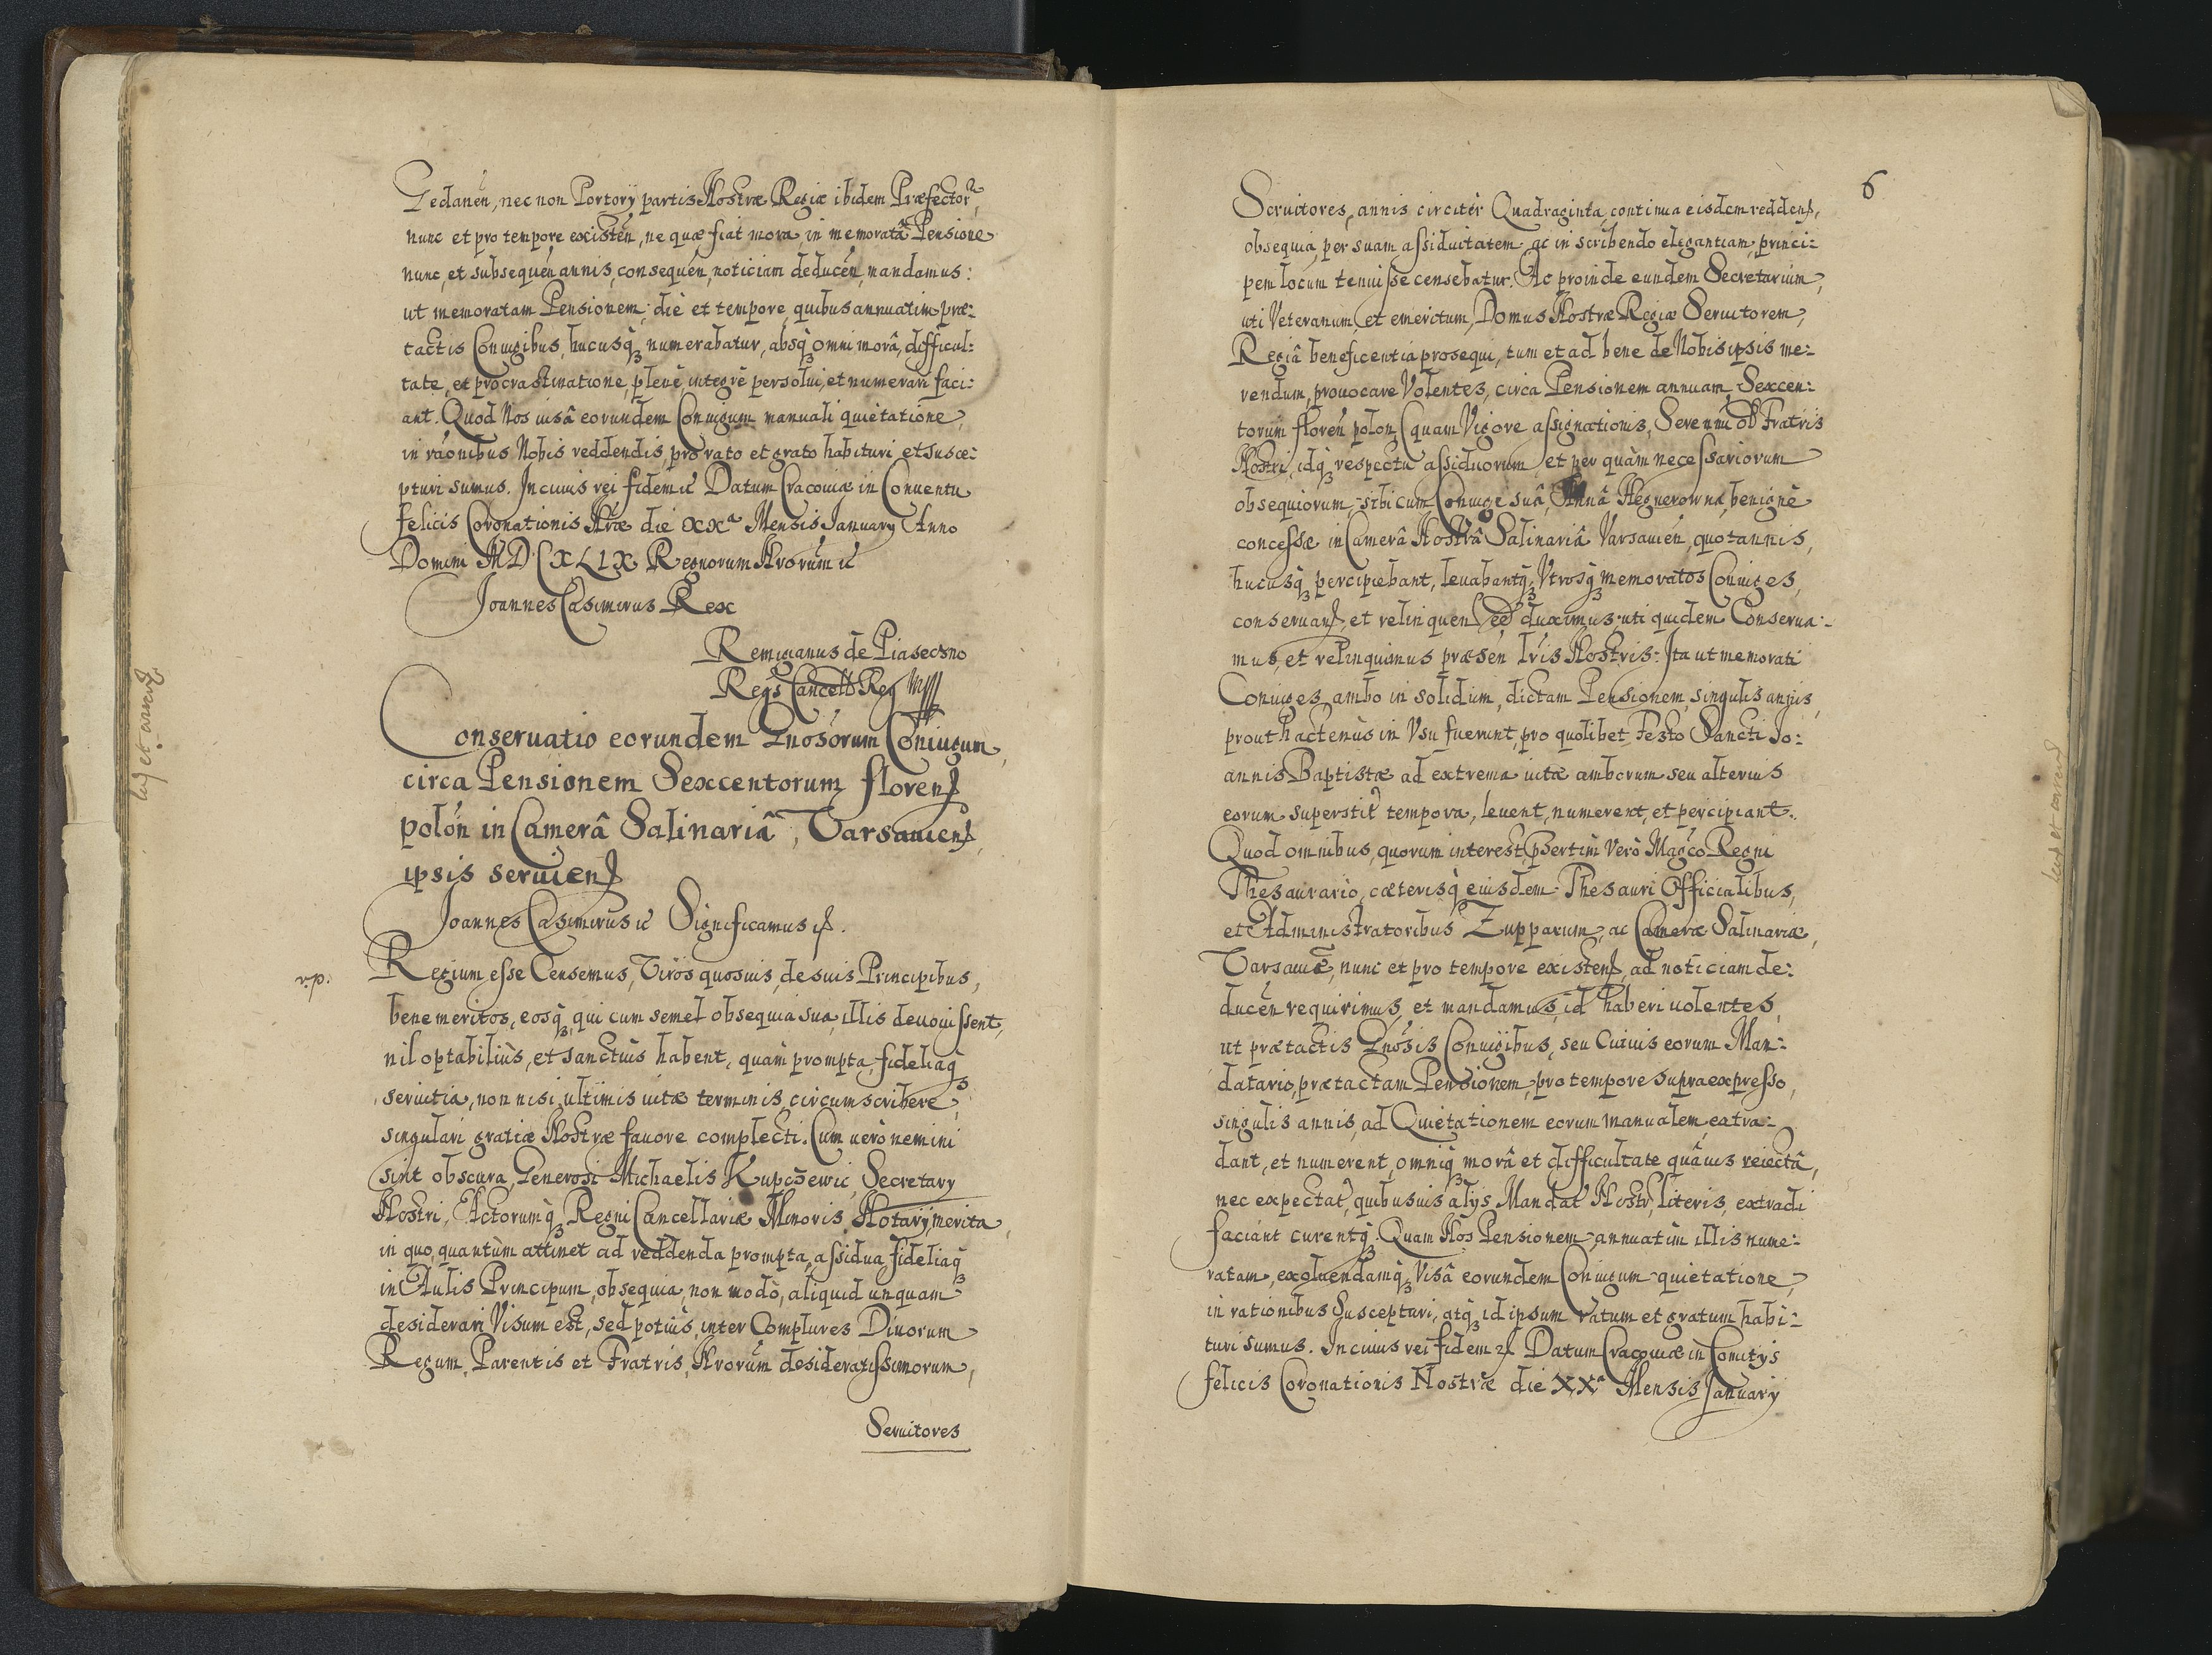 Gedanen, nec non Portorÿ partis Nostræ Regiæ ibidem Præfector,
nunc et pro tempore existen, ne quæ fiat mora, in memoratâ Pensione
nunc, et subsequen annis, consequen, noticiam deducen, mandamus:
ut memoratam Pensionem, die et tempore, quibus annuatim præ:
tactis Coniugibus, hucusq, numerabatur, absq omni morâ, difficul:
tate, et procrastinatione, plenè, integrè persolui, et numerari faci:
ant. Quod Nos uisâ eorundem Coniugum manuali quietatione,
in raõnibus Nobis reddendis, pro rato et grato habituri et susce:
pturi sumus. In cuius rei fidem ec Datum Cracouiæ in Conuentu
felicis Coronationis Nræ die XXa Mensis Januarÿ Anno
Domini MDCXLIX Regnorum Nrorum ec
Joannes Casimirus Rex
Remigianus de Piaseczno
Regs Cancell Reg
Conseruatio eorundem Gnosorum Coniugum,
circa Pensionem Sexcentorum floren
polon in Camerâ Salinariâ, Varsauien,
ipsis seruien
Joannes Casimirus ec Significamus
Regium esse Censemus, Viros quosuis, de suis Principibus,
bene meritos, eosq, qui cum semel obsequia sua, illis deuouissent,
nil optabiliùs, et sanctius habent, quam prompta, fideliaq
seruitia, non nisi ultimis uitæ terminis, circumscribere,
singulari gratiæ Nostræ fauore complecti. Cum uerò nemini
sint obscura, Generosi Michaelis Kupczewic, Secretarÿ
Nostri, Actorumq Regni Cancellariæ Minoris Notarÿ, merita,
in quo, quantùm attinet ad reddenda prompta, assidua fideliaq
in Aulis Principum, obsequia, non modò, aliquid unquam
desiderari Visum est, sed potiùs inter Complures Diuorum
Regum, Parentis et Fratris, Nrorum desideratissimorum,
Seruitores
6
Seruitores, annis circitèr Quadraginta, continua eisdem redden,
obsequia, per suam assiduitatem, ac in scribendo elegantiam, princi:
pem locum tenuisse censebatur. Ac proinde eundem Secretarium,
uti Veteranum, et emeritum, Domus Nostræ Regiæ Seruitorem,
Regiâ beneficentiâ prosequi, tum et ad bene de Nobis ipsis me:
rendum, prouocare Volentes, circa Pensionem annuam, Sexcen:
torum floren polon, quam Vigore assignationis, Serenmi Fratris
Nostri, idq respectu assiduorum et per quàm necessariorum
obsequiorum, sibi cum Coniuge suâ, Annâ Hegnerowna, benignè
concessæ in Camerâ Nostrâ Salinariâ Varsauien, quotannis,
hucusq percipiebant, leuabantq, Vtrosq memoratos Coniuges,
conseruan, et relinquen duximus, uti quidem Conserua:
mus, et relinquimus præsen Lris Nostris: Ita ut memorati
Coniuges, ambo in solidum, dictam Pensionem, singulis annis,
prout hactenùs in Vsu fuerunt, pro quolibet Festo Sancti Jo:
annis Baptistæ ad extrema uitæ amborum seu alterius
eorum superstit tempora, leuent, numerent, et percipiant.
Quod omnibus, quorum interest, psertim Verò Magco Regni
Thesaurario, cæterisq eiusdem Thesauri Officialibus,
et Administratoribus Zupparum, ac Cameræ Salinariæ,
Varsauien, nunc et pro tempore existen, ad noticiam de:
ducen requirimus, et mandamus, id haberi uolentes,
ut prætactis Gnosis Coniugibus, seu Cuiuis eorum Man:
datario, prætactam Pensionem, pro tempore supraexpresso,
singulis annis, ad Quietationem eorum manualem, extra:
dant, et numerent, omniq morâ et difficultate quâuis reiectâ,
nec expectat, quibusuis alÿs Mandat Nostr, literis, extradi
faciant curentq. Quam Nos Pensionem, annuatim illis nume:
ratam, exoluendamq, Visâ eorundem Coniugum quietatione,
in rationibus Suscepturi, atq id ipsum ratum et gratum habi:
turi sumus. In cuius rei fidem Datum Cracouiæ in Comitÿs
felicis Coronationis Nostræ die XXa Mensis Januarÿ